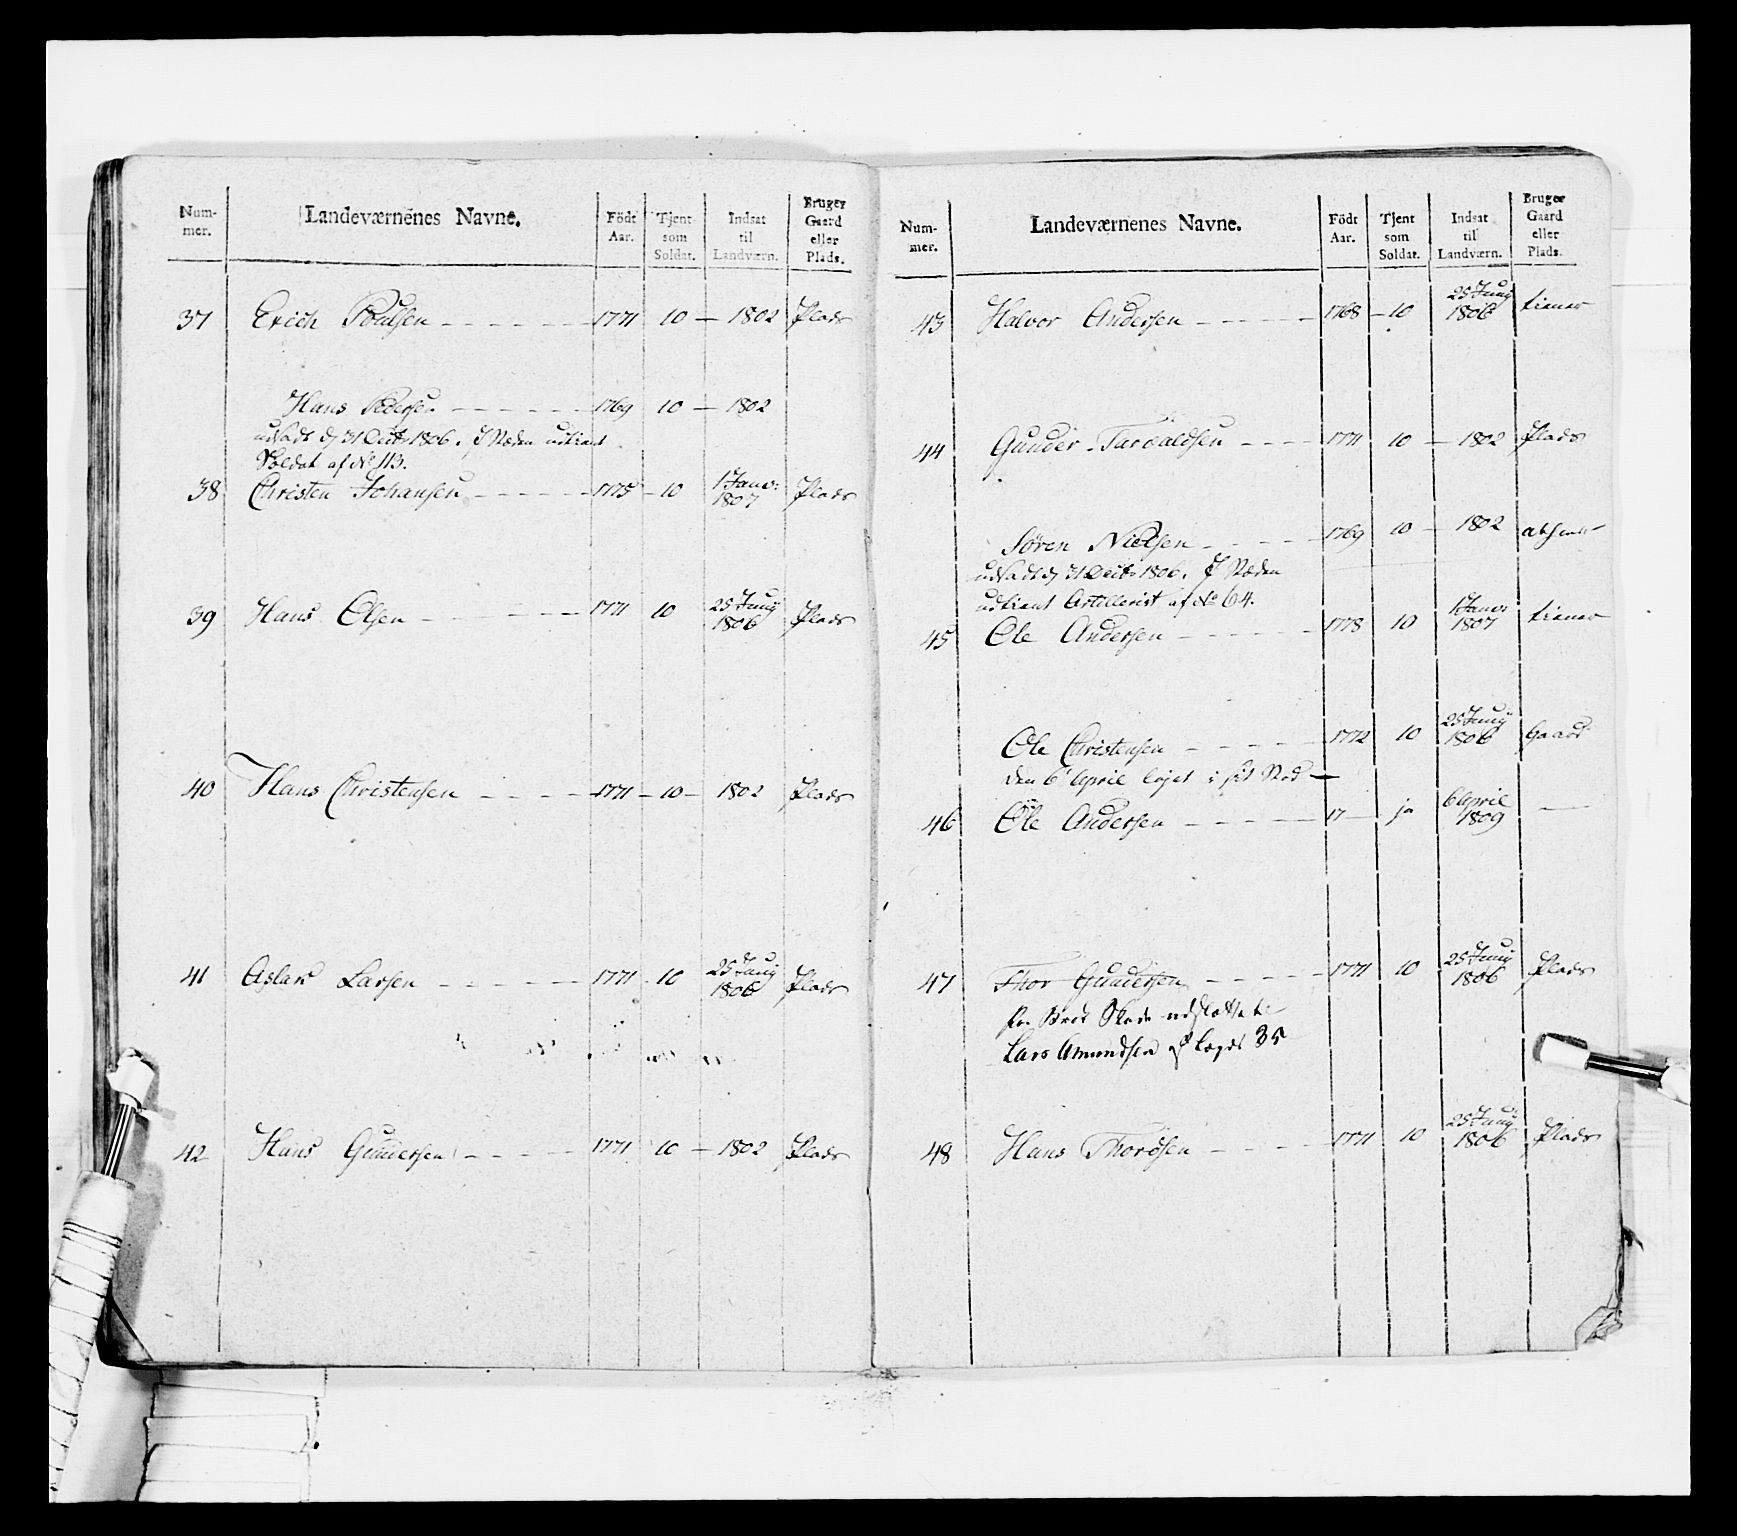 Num-mer. Landeværnenes Navne. Född Aar. Tjent som Soldat. Indsat til Landværn. Bruger Gaard eller Plads.
37 Erich Poulsen 1771 10 1802 Plads
Hans Pedersen 1769 10 1802
udsadt d 31 Decbr 1806. I Stæden udtient
Soldat af No 113.
38 Christen Johansen 1775 10 1 Janv: 1807 Plads
39 Hans Olsen 1771 10 25 Juny 1806 Plads
40 Hans Christensen 1771 10 1802 Plads
41 Aslak Larsen 1771 10 25 Juny 1806 Plads
42 Hans Gundersen 1771 10 1802 Plads
Num-mer. Landeværnenes Navne. Född Aar. Tjent som Soldat. Indsat til Landværn. Bruger Gaard eller Plads.
43 Halvor Andersen 1768 10 25 Juny 1806 tiener
44 Gunder Tarvaldsen 1771 10 1802 Plads
Søren Nielsen 1769 10 1802
udsadt d 31 Decbr 1806. I Stæden
udtient Artillerist af No 64.
45 Ole Andersen 1778 10 1 Janv: 1807 tiener
Ole Christensen 1772 10 25 Juny 1806 Gaard
den 6 April lejet i sit Sted
46 Ole Andersen 17 ja 6 April 1809
47 Thor Gundersen 1771 10 25 Juny 1806 Plads
for Brok Skade udslettet
Lars Amundsen af Lægd 35
48 Hans Thordsen 1771 10 25 Juny 1806 Plads